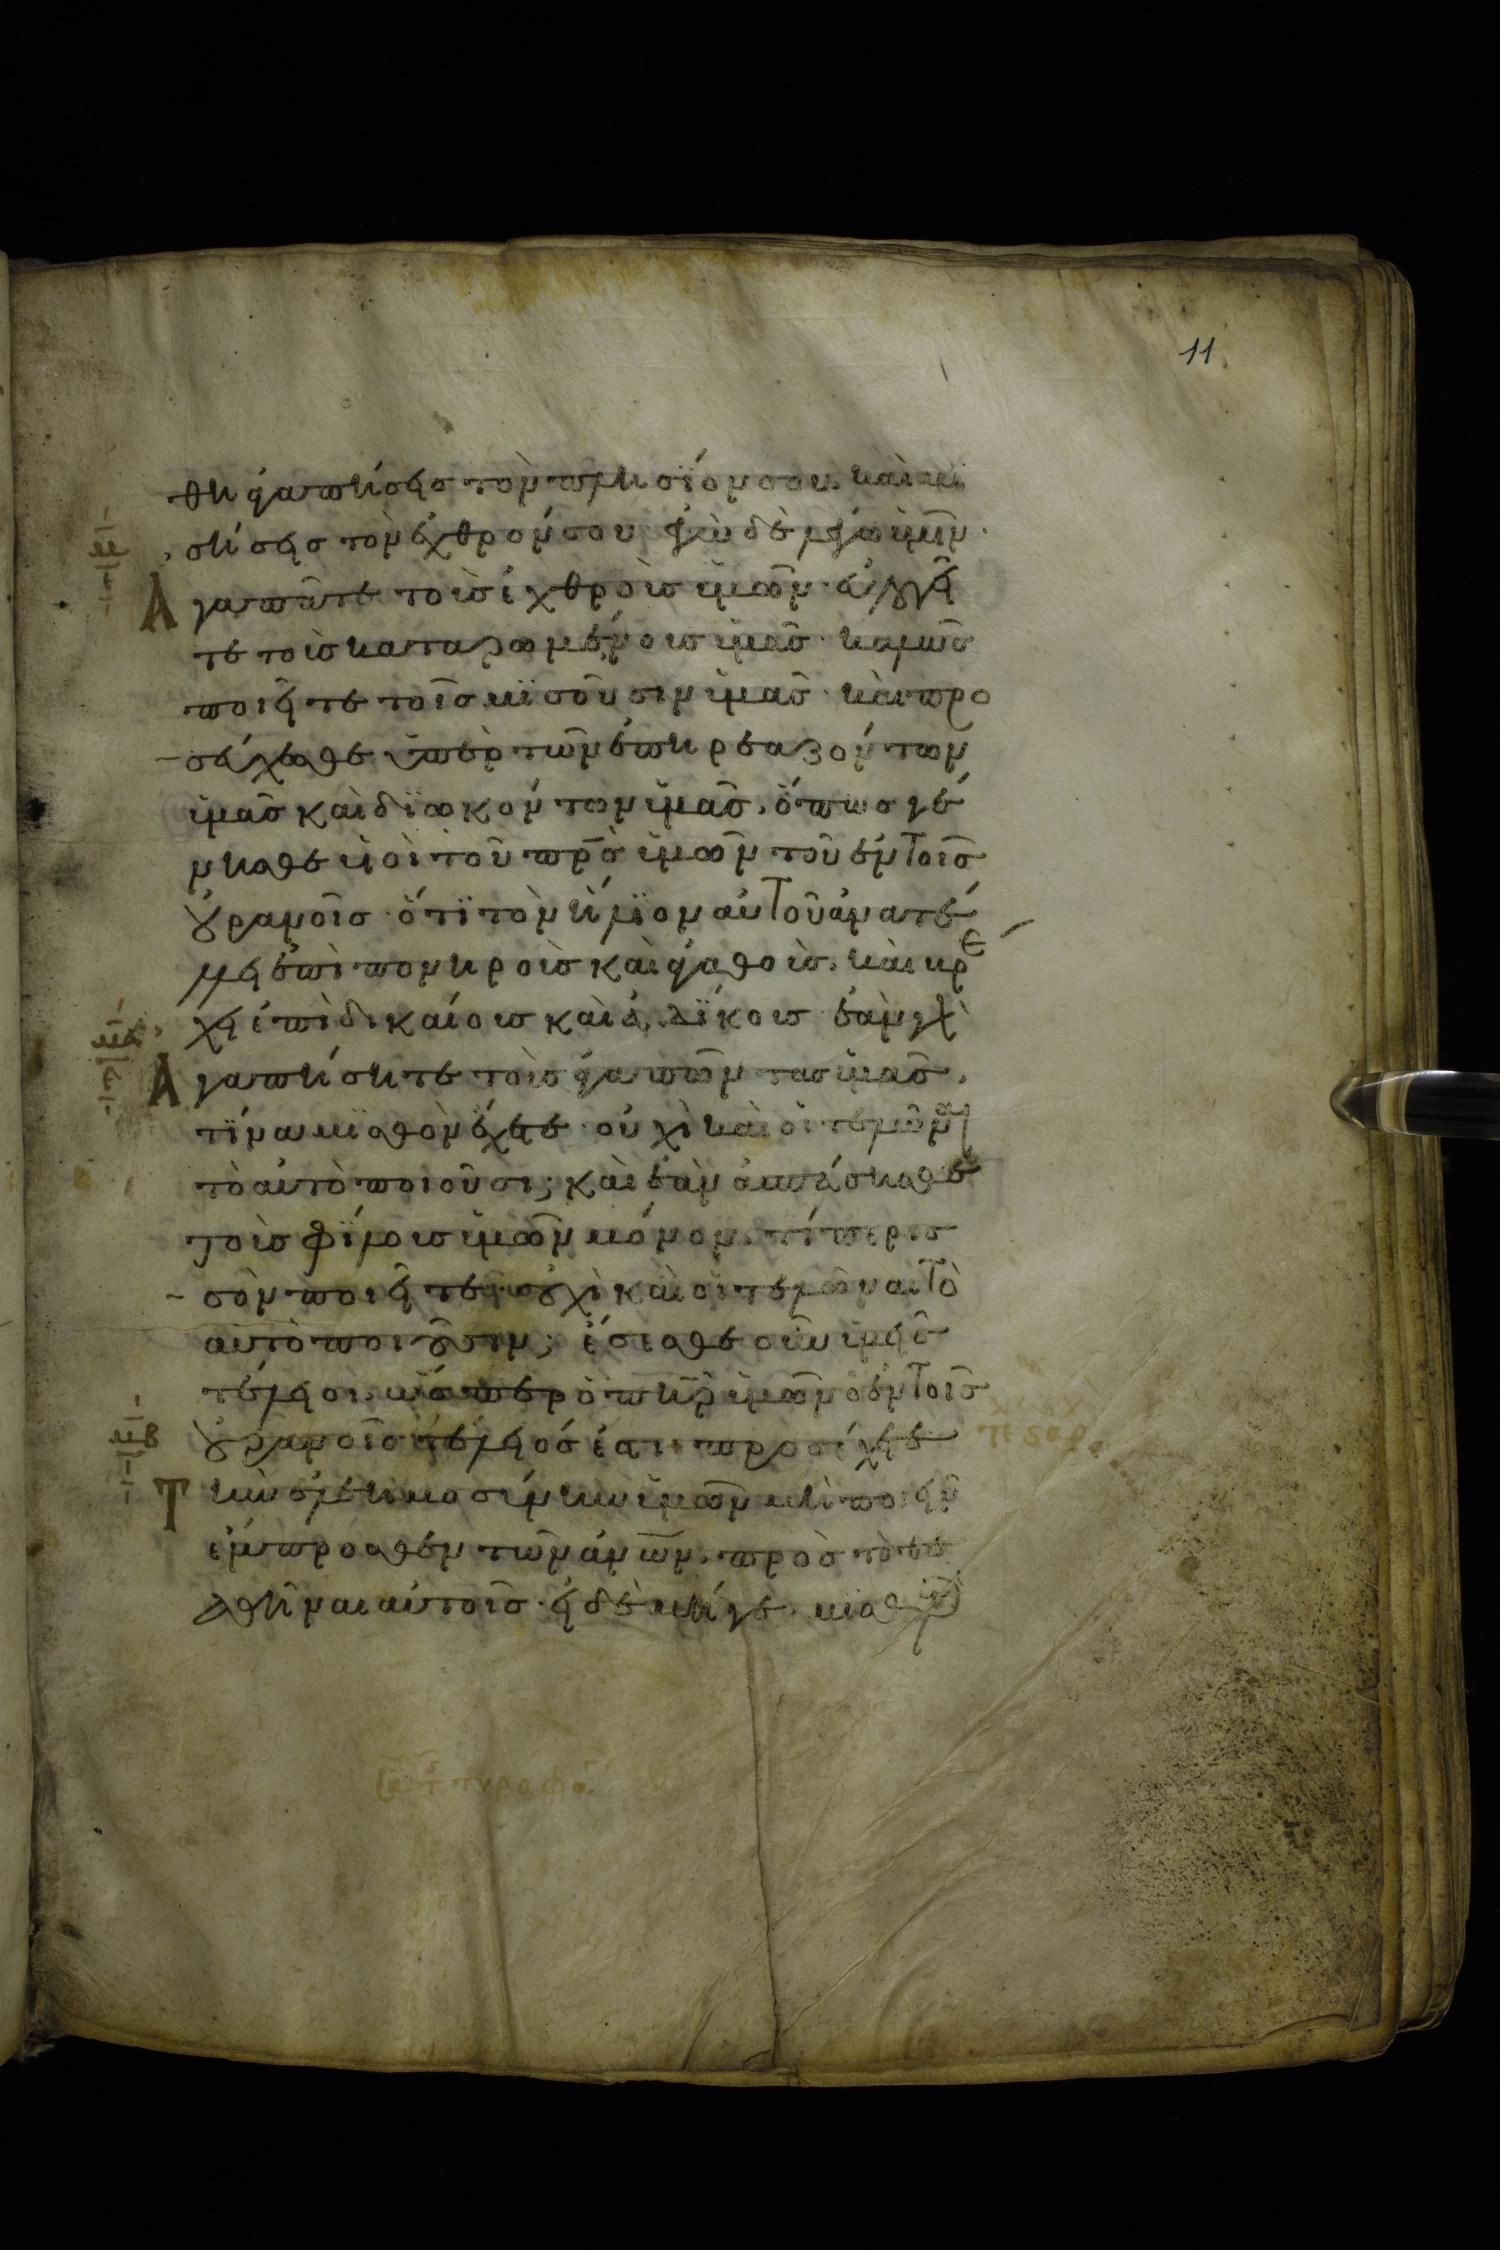 11
θη ἀγαπήσεισ τὸν πλησϊόν σου. καὶ μϊ
σήσεισ τὸν ἐχθρόν σου ἐγὼ δὲ λέγω ὑμῖν·
Ἀγαπᾶτε τοὺσ ἐχθροὺσ ὑμῶν· εὐλογεῖ
τε τοὺσ καταρωμένουσ ὑμᾶσ· καλῶσ
ποιεῖτε τοῖσ μϊσοῦσιν ὑμᾶσ· καὶ προ
σεύχεσθε ὑπὲρ τῶν ἐπηρεαζόντων
ὑμᾶσ καὶ δϊωκόντων ὑμᾶσ. ὅπωσ γέ
νησθε υἱοὶ τοῦ πρ̅σ ὑμῶν τοῦ ἐν τοῖσ
οὐρανοῖσ· ὅτϊ τὸν ἥλϊον αὐτοῦ ἀνατέ
λλει ἐπὶ πονηροὺσ καὶ ἀγαθούσ. καὶ βρέ
χει ἐπὶ δικαίουσ καὶ ἀδϊκουσ ἐὰν γὰρ
Ἀγαπήσητε τοὺσ ἀγαπῶντασ ὑμᾶσ.
τίνα μϊσθὸν ἔχετε· οὐχὶ καὶ οἱ τελῶναι
τὸ αὐτὸ ποιοῦσι; καὶ ἐὰν ἀσπάσησθε
τοὺσ φϊλουσ ὑμῶν μόνον. τί περισ
σὸν ποιεῖτε; οὐχὶ καὶ οἱ τελῶναι τὸ
αὐτὸ ποιοῦσιν; ἔσεσθε οὖν ὑμεῖσ
τέλειοι. ὥσπερ ὁ πη̅ρ ὑμῶν ὁ ἐν τοῖσ
οὐρανοῖσ τέλειόσ ἐστι· προσέχετε
Τὴν ἐλεημοσύνην ὑμῶν μὴ ποιεῖν
ἔμπροσθεν τῶν ἀν̅ων. πρὸσ τὸ θε
αθῆναι αὐτοῖσ· εἰ δὲ μήγε. μϊσθὸν